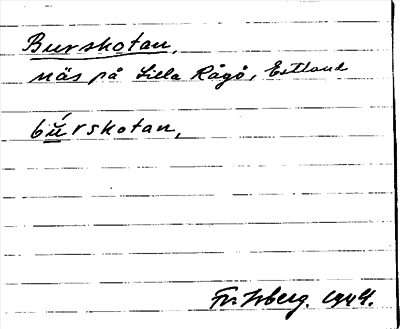 Burskotan,
näs på Lilla Rågö, Estland
bú̲rskotan,
1944.